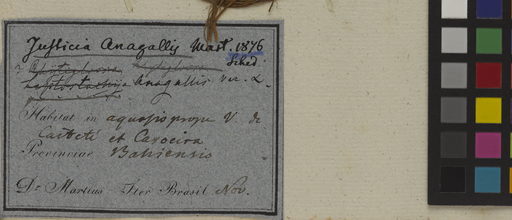 Justicia Anagallis Mart. 1876
Sched
Anagallis var. α
Habitat in aquosis prope V. de
Caëteté et Caxoeira
Provinciae Bahiensis
Dr Martius Iter Brasil. Nov.